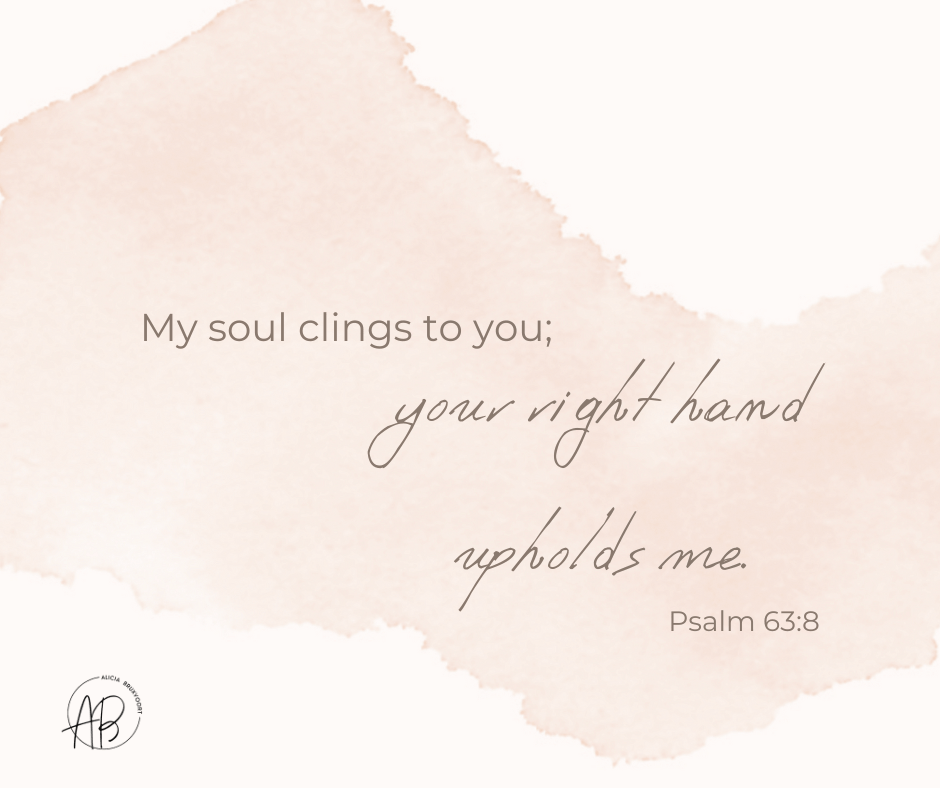 My soul clings to you;
your right hand
upholds me.
Psalm 63:8
ALICIA BRUXVOORT
AB